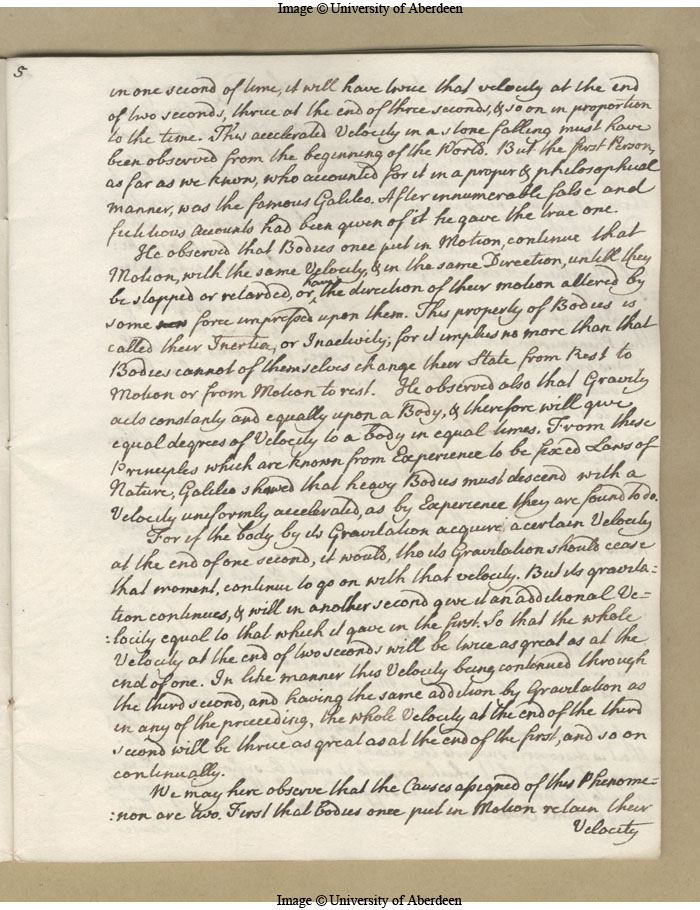 Image © University of Aberdeen
5
in one second of time, it will have twice that velocity at the end
of two seconds, thrice at the end of three seconds, & so on in proportion
to the time. This accelerated Velocity in a stone falling must have
been observed from the beginning of the World. But the first Person,
as far as we know, who accounted for it in a proper & philosophical
manner, was the famous Galileo. After innumerable false and
fictitious accounts had been given of it he gave the true one.
He observed that Bodies once put in Motion, continue that
Motion, with the same Velocity, & in the same Direction, untill they
be stopped or retarded, or have the direction of their motion altered by
some force impressed upon them. This property of Bodies is
called their Inertia, or Inactivity; for it implies no more than that
Bodies cannot of themselves change their State from Rest to
Motion or from Motion to rest. He observed also that Gravity
acts constantly and equally upon a Body, & therefore will give
equal degrees of Velocity to a body in equal times. From these
Principles which are known from Experience to be fixed Laws of
Nature, Galileo showed that heavy Bodies must descend with a
Velocity uniformly accelerated, as by Experience they are found to do.
For if the body by its Gravitation acquire a certain Velocity
at the end of one second, it would, tho its Gravitation should cease
that moment, continue to go on with that velocity. But its gravita=
tion continues, & will in another second give it an additional Ve=
:locity equal to that which it gave in the first. So that the whole
Velocity at the end of two seconds will be twice as great as at the
end of one. In like manner this Velocity being continued through
the third second, and having the same addition by Gravitation as
in any of the preceeding, the whole Velocity at the end of the third
second will be thrice as great as at the end of the first, and so on
continually.
We may here observe that the Causes assigned of this Phenome=
:non are two. First that bodies once put in Motion retain their
Velocity
Image © University of Aberdeen